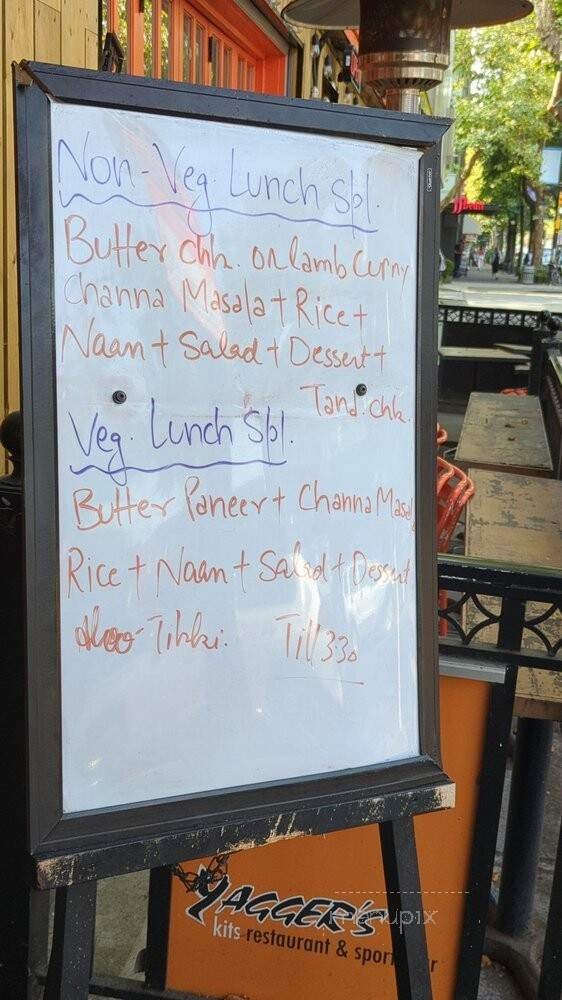 Non-Veg. Lunch Spl.
Butter chk. or lamb Curry
Channa Masala + Rice +
Naan + Salad + Dessert +
Tand. chk.
Veg. Lunch Spl.
Butter Paneer + Channa Masala
Rice + Naan + Salad + Dessert
Aloo-Tikki. Till 3:30
YAGGER'S
kits restaurant & sport
menupix